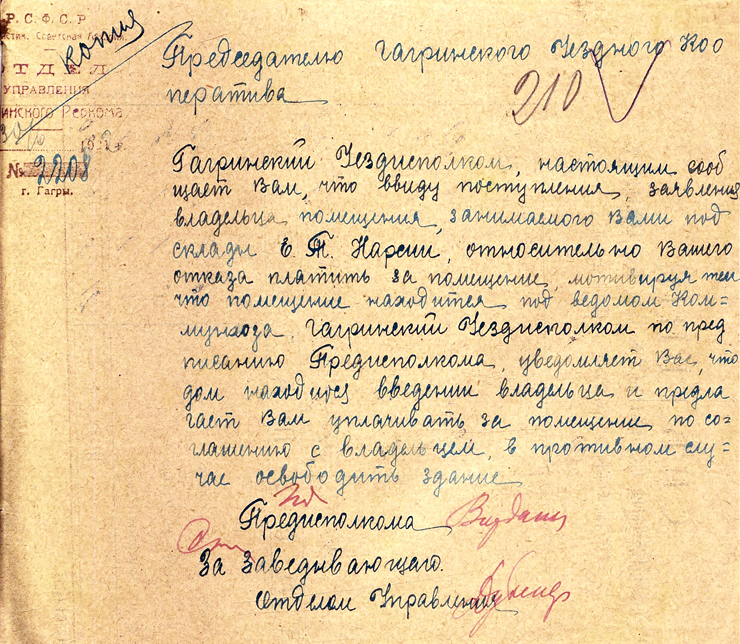 Р.С.Ф.С.Р
Советская
ОТДЕЛ
УПРАВЛЕНИЯ
Ревкома
№ 2208
г. Гагры.
копия
Председателю гагринского Уездного Коо
ператива
210
Гагринский Уездисполком, настоящим сооб
щает Вам, что ввиду поступления, заявления
владельца помещения, занимаемого Вами под
склады Е. Т. Нарсии, относительно Вашего
отказа платить за помещение, мотивируя тем
что помещение находится под ведомом Ком-
мунхоза, гагринский Уездисполком по пред
писанию Предисполкома, уведомляет Вас, что
дом находися введении владельца и предла
гает Вам уплачивать за помещение по со-
глашению с владельцем, в противном слу-
чае освободить здание
Предисполкома
За Заведывающего.
Отделом Управления